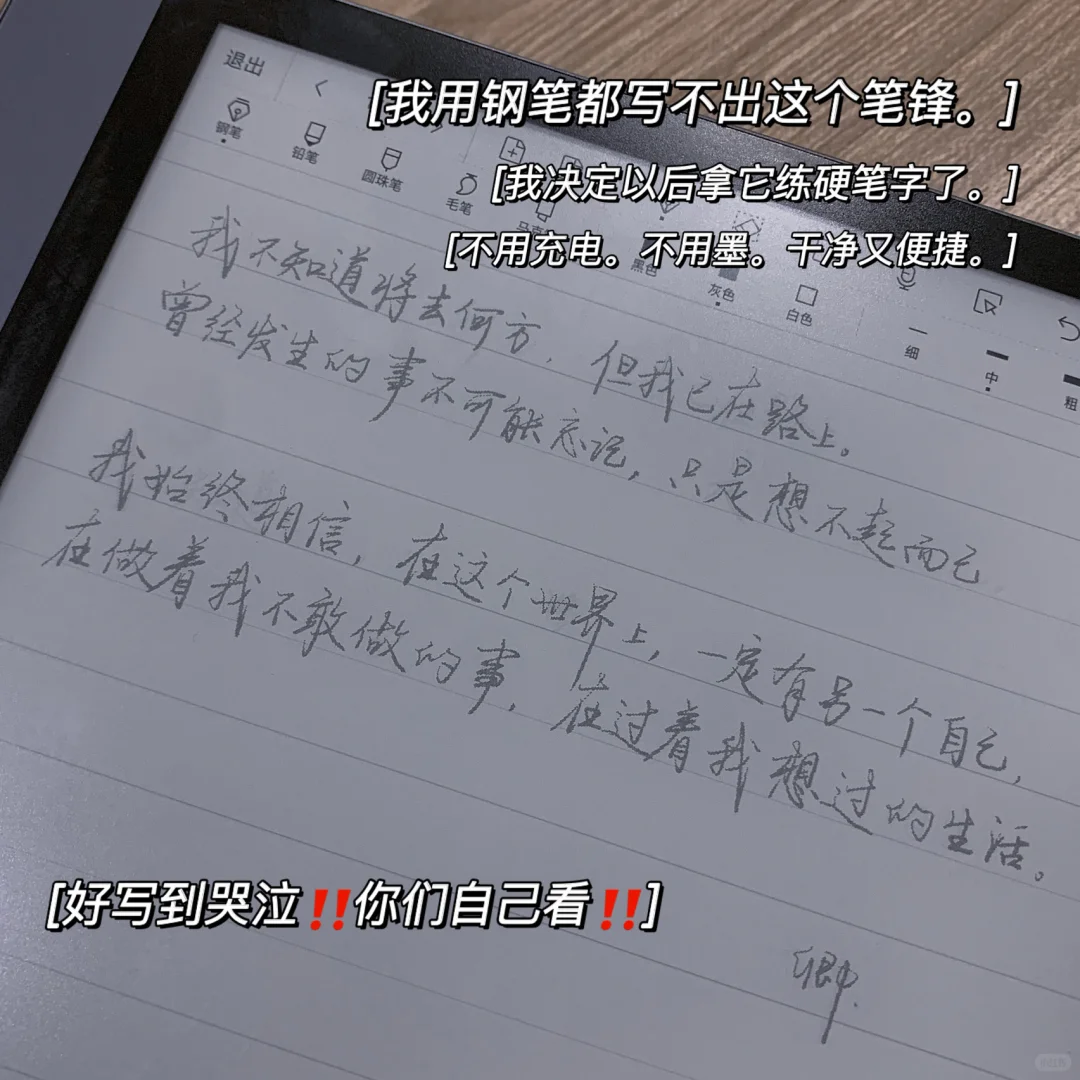 退出
[我用钢笔都写不出这个笔锋。]
钢笔
铅笔
圆珠笔
毛笔
[我决定以后拿它练硬笔字了。]
[不用充电。不用墨。干净又便捷。]
黑色
灰色
白色
细
中
粗
我不知道将去何方，但我已在路上。
曾经发生的事不可能忘记，只是想不起而已
我始终相信，在这个世界上，一定有另一个自己，
在做着我不敢做的事，在过着我想过的生活。
[好写到哭泣‼️你们自己看‼️]
卿
小红书